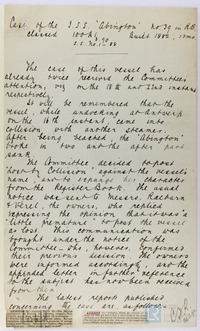 Case of the I.S.S. "Abington" no 39 in R.B.
classed 100A1 built 1882,
The case of this vessel has
already twice received the Committee's
attention, viz on the 18th and 22nd instant
respectively.
It will be remembered that the
vessel, while unmooring at Antwerp
on the 16th instant, came into
collision with another steamer.
After being beached, the "Abington"
broke in two and the after part
sank.
The Committee decided to post
"lost by Collision" against the vessel's
name, and to expunge her character
from the Register Book. The usual
notice was sent to Messrs.
the owners, who replied
expressing the opinion that it was "a
little premature" to post the vessel
as lost. This communication was
brought under the notice of the
Committee who, however, confirmed
their previous decision. The owners
were informed accordingly, and the
appended letter in further reference
to the subject has now been received
from them.
The latest report published
concerning the case are as follows:-